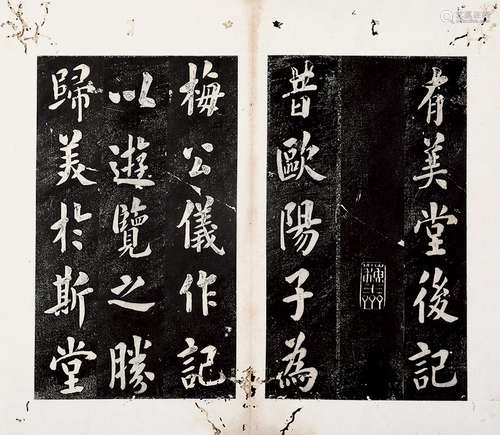 有美堂後記
昔歐陽子為
梅公儀作記
以遊覽之勝
歸美於斯堂